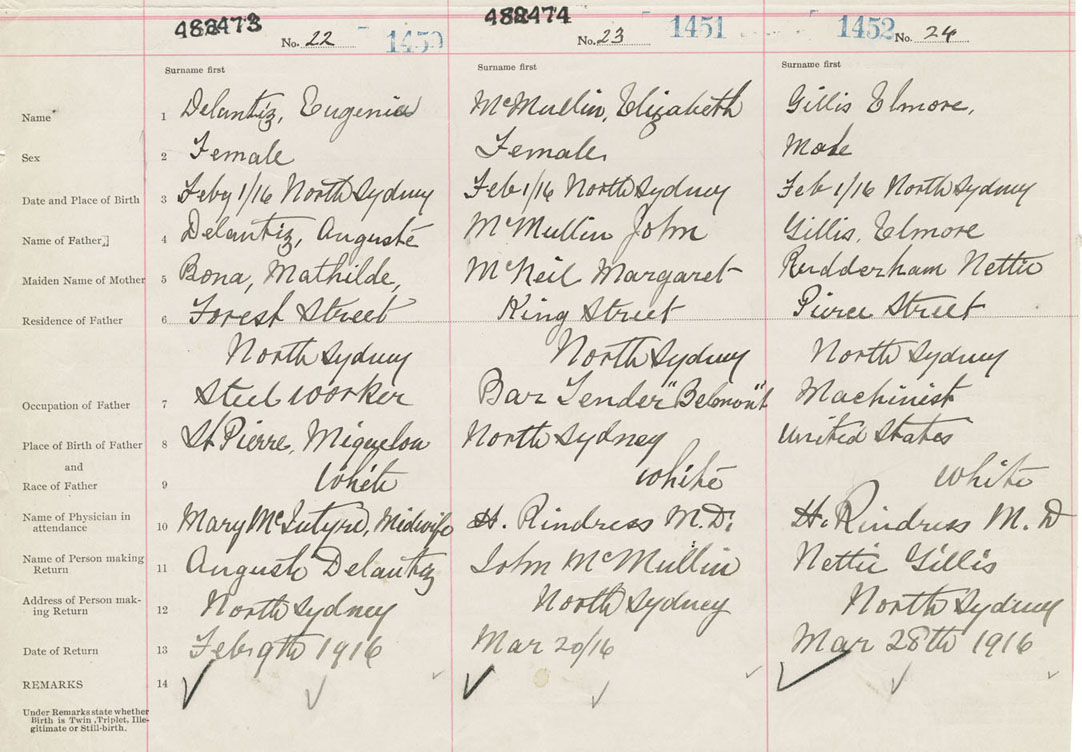 488473
No. 22
1450
488474
No. 23
1451
1452
No. 24
Surname first
Surname first
Surname first
Name 1 Delantiz, Eugenia McMullin, Elizabeth Gillis Elmore,
Sex 2 Female Female Male
Date and Place of Birth 3 Feby 1/16 North Sydney Feb 1/16 North Sydney Feb 1/16 North Sydney
Name of Father 4 Delantiz, Auguste McMullin John Gillis, Elmore
Maiden Name of Mother 5 Bona, Mathilde, McNeil Margaret Rudderham Nettie
Residence of Father 6 Forest Street King Street Pierce Street
North Sydney North Sydney North Sydney
Occupation of Father 7 Steel worker Bar Tender "Belmont" Machinist
Place of Birth of Father 8 St Pierre, Miquelon North Sydney United States
and
Race of Father 9 White White White
Name of Physician in
attendance 10 Mary McIntyre, Midwife H. Rindress M.D. H. Rindress M.D
Name of Person making
Return 11 Auguste Delantiz John McMullin Nettie Gillis
Address of Person mak-
ing Return 12 North Sydney North Sydney North Sydney
Date of Return 13 Feb 9th 1916 Mar 20/16 Mar 28th 1916
REMARKS 14
Under Remarks state whether
Birth is Twin, Triplet, Ille-
gitimate or Still-birth.